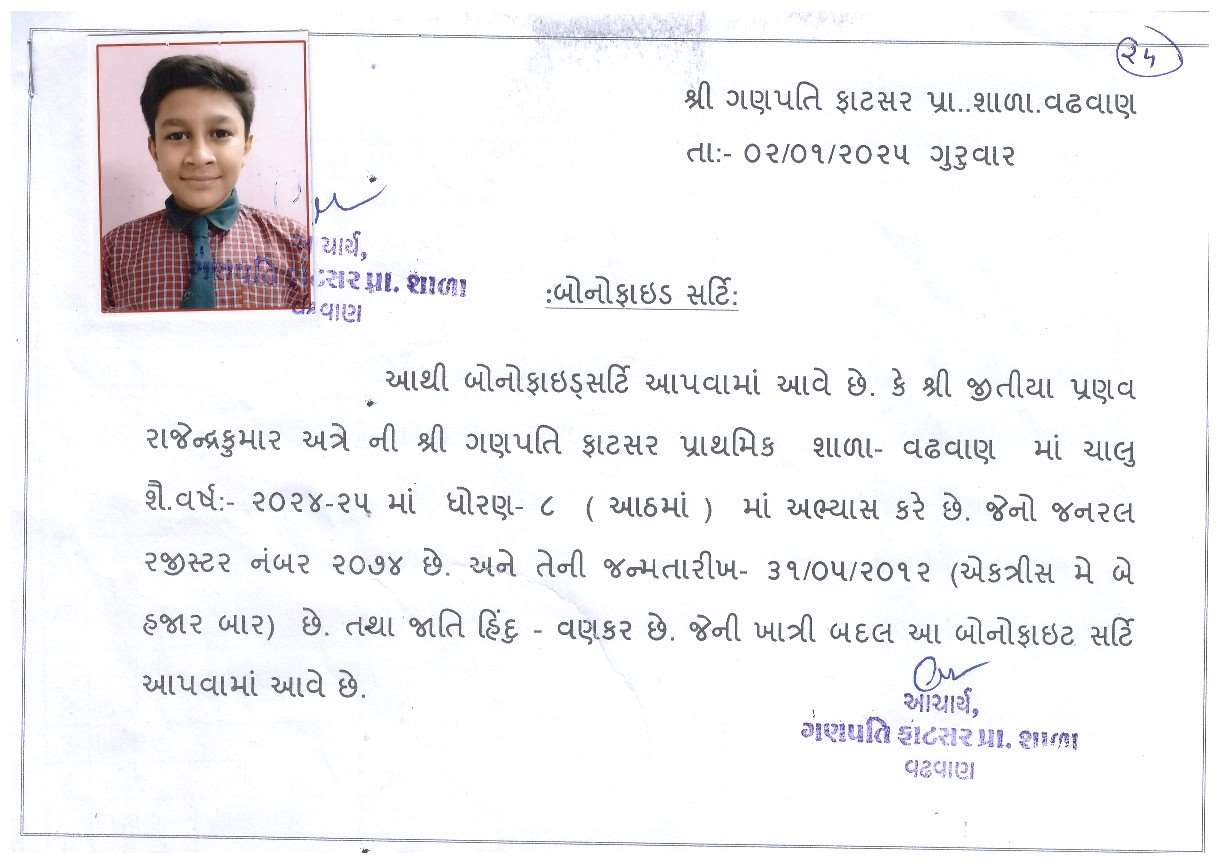 ૨૫
શ્રી ગણપતિ ફાટસર પ્રા..શાળા.વઢવાણ
તાઃ- ૦૨/૦૧/૨૦૨૫ ગુરુવાર
આચાર્ય,
ગણપતિ ફાટસર પ્રા. શાળા
વઢવાણ
:બોનોફાઇડ સર્ટિ:
આથી બોનોફાઇડ્સર્ટિ આપવામાં આવે છે. કે શ્રી જીતીયા પ્રણવ
રાજેન્દ્રકુમાર અત્રે ની શ્રી ગણપતિ ફાટસર પ્રાથમિક શાળા- વઢવાણ માં ચાલુ
શૈ.વર્ષઃ- ૨૦૨૪-૨૫ માં ધોરણ- ૮ ( આઠમાં ) માં અભ્યાસ કરે છે. જેનો જનરલ
રજીસ્ટર નંબર ૨૦૭૪ છે. અને તેની જન્મતારીખ- ૩૧/૦૫/૨૦૧૨ (એકત્રીસ મે બે
હજાર બાર) છે. તથા જાતિ હિંદુ - વણકર છે. જેની ખાત્રી બદલ આ બોનોફાઇટ સર્ટિ
આપવામાં આવે છે.
આચાર્ય,
ગણપતિ ફાટસર પ્રા. શાળા
વઢવાણ